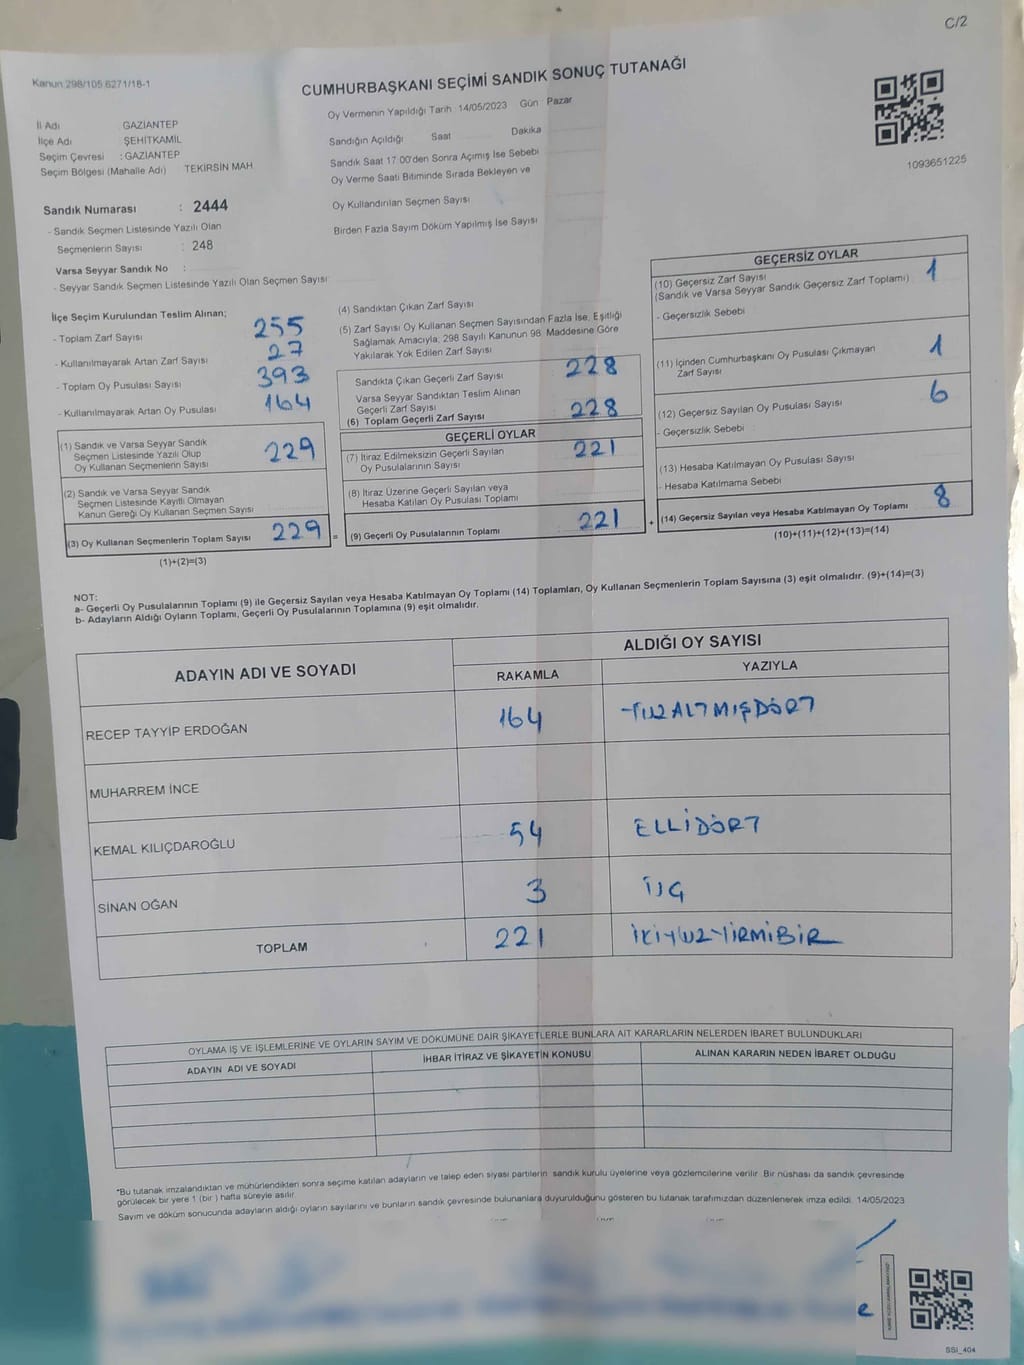 C/2
Kanun:298/105.6271/18-1
CUMHURBAŞKANI SEÇİMİ SANDIK SONUÇ TUTANAĞI
Oy Vermenin Yapıldığı Tarih 14/05/2023 Gün Pazar
İl Adı GAZİANTEP
İlçe Adı ŞEHİTKAMİL
Seçim Çevresi : GAZİANTEP
Seçim Bölgesi (Mahalle Adı) TEKIRSİN MAH.
Sandığın Açıldığı Saat Dakika
Sandık Saat 17.00'den Sonra Açımış İse Sebebi
Oy Verme Saati Bitiminde Sırada Bekleyen ve
Oy Kullandırılan Seçmen Sayısı
Birden Fazla Sayım Döküm Yapılmış İse Sayısı
1093651225
Sandık Numarası : 2444
- Sandık Seçmen Listesinde Yazılı Olan
Seçmenlerin Sayısı : 248
Varsa Seyyar Sandık No :
- Seyyar Sandık Seçmen Listesinde Yazılı Olan Seçmen Sayısı
İlçe Seçim Kurulundan Teslim Alınan;
- Toplam Zarf Sayısı 255
- Kullanılmayarak Artan Zarf Sayısı 27
- Toplam Oy Pusulası Sayısı 393
- Kullanılmayarak Artan Oy Pusulası 164
(1) Sandık ve Varsa Seyyar Sandık
Seçmen Listesinde Yazılı Olup
Oy Kullanan Seçmenlerin Sayısı 229
(2) Sandık ve Varsa Seyyar Sandık
Seçmen Listesinde Kayıtlı Olmayan
Kanun Gereği Oy Kullanan Seçmen Sayısı
(3) Oy Kullanan Seçmenlerin Toplam Sayısı 229 =
(1)+(2)=(3)
(4) Sandıktan Çıkan Zarf Sayısı
(5) Zarf Sayısı Oy Kullanan Seçmen Sayısından Fazla İse, Eşitliği
Sağlamak Amacıyla; 298 Sayılı Kanunun 98. Maddesine Göre
Yakılarak Yok Edilen Zarf Sayısı
Sandıkta Çıkan Geçerli Zarf Sayısı 228
Varsa Seyyar Sandıktan Teslim Alınan
Geçerli Zarf Sayısı
(6) Toplam Geçerli Zarf Sayısı 228
GEÇERLİ OYLAR
(7) İtiraz Edilmeksizin Geçerli Sayılan
Oy Pusulalarının Sayısı 221
(8) İtiraz Üzerine Geçerli Sayılan veya
Hesaba Katılan Oy Pusulası Toplamı
(9) Geçerli Oy Pusulalarının Toplamı 221 +
GEÇERSİZ OYLAR
(10) Geçersiz Zarf Sayısı 1
(Sandık ve Varsa Seyyar Sandık Geçersiz Zarf Toplamı)
- Geçersizlik Sebebi
(11) İçinden Cumhurbaşkanı Oy Pusulası Çıkmayan
Zarf Sayısı 1
(12) Geçersiz Sayılan Oy Pusulası Sayısı 6
- Geçersizlik Sebebi
(13) Hesaba Katılmayan Oy Pusulası Sayısı
- Hesaba Katılmama Sebebi
(14) Geçersiz Sayılan veya Hesaba Katılmayan Oy Toplamı 8
(10)+(11)+(12)+(13)=(14)
NOT:
a- Geçerli Oy Pusulalarının Toplamı (9) ile Geçersiz Sayılan veya Hesaba Katılmayan Oy Toplamı (14) Toplamları, Oy Kullanan Seçmenlerin Toplam Sayısına (3) eşit olmalıdır. (9)+(14)=(3)
b- Adayların Aldığı Oyların Toplamı, Geçerli Oy Pusulalarının Toplamına (9) eşit olmalıdır.
ADAYIN ADI VE SOYADI
ALDIĞI OY SAYISI
RAKAMLA YAZIYLA
RECEP TAYYİP ERDOĞAN 164 YÜZALTMIŞDÖRT
MUHARREM İNCE
KEMAL KILIÇDAROĞLU 54 ELLİDÖRT
SİNAN OĞAN 3 ÜÇ
TOPLAM 221 İKİYÜZYİRMİBİR
OYLAMA İŞ VE İŞLEMLERİNE VE OYLARIN SAYIM VE DÖKÜMÜNE DAİR ŞİKAYETLERLE BUNLARA AİT KARARLARIN NELERDEN İBARET BULUNDUKLARI
ADAYIN ADI VE SOYADI
İHBAR İTİRAZ VE ŞİKAYETİN KONUSU
ALINAN KARARIN NEDEN İBARET OLDUĞU
"Bu tutanak imzalandıktan ve mühürlendikten sonra seçime katılan adayların ve talep eden siyasi partilerin sandık kurulu üyelerine veya gözlemcilerine verilir. Bir nüshası da sandık çevresinde
görülecek bir yere 1 (bir) hafta süreyle asılır
Sayım ve döküm sonucunda adayların aldığı oyların sayılarını ve bunların sandık çevresinde bulunanlara duyurulduğunu gösteren bu tutanak tarafımızdan düzenlenerek imza edildi. 14/05/2023
SSI_404